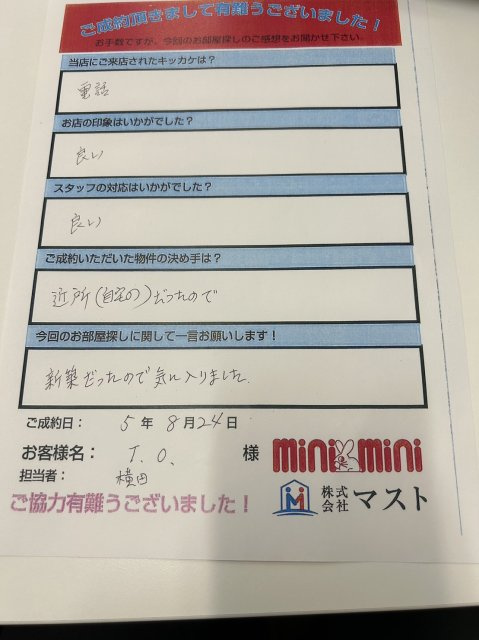 ご成約頂きまして有難うございました！
お手数ですが、今回のお部屋探しのご感想をお聞かせ下さい。
当店にご来店されたキッカケは？
電話
お店の印象はいかがでした？
良い
スタッフの対応はいかがでした？
良い
ご成約いただいた物件の決め手は？
近所(自宅の)だったので
今回のお部屋探しに関して一言お願いします！
新築だったので気に入りました.
ご成約日： 5年 8月24日
お客様名： T.O. 様
minimini
担当者： 横田
株式会社マスト
ご協力有難うございました！